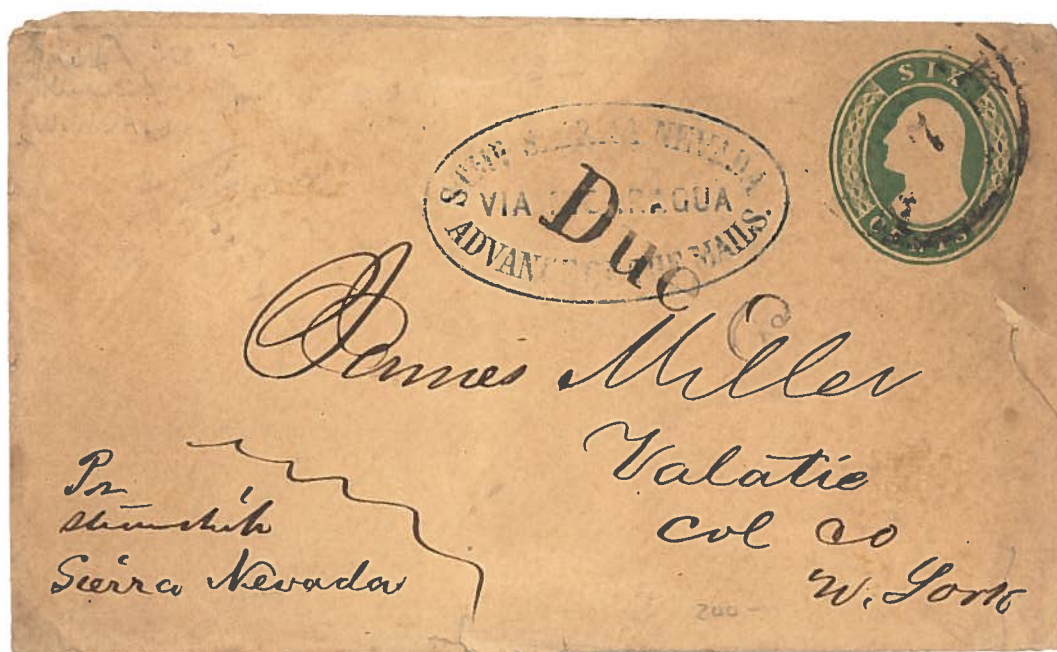 SIX
CENTS
STMR. SIERRA NEVADA
VIA NICARAGUA
ADVANCE OF THE MAILS.
Due 6
James Miller
Valatie
Col Co
N. York
Pr
steamship
Sierra Nevada
200-